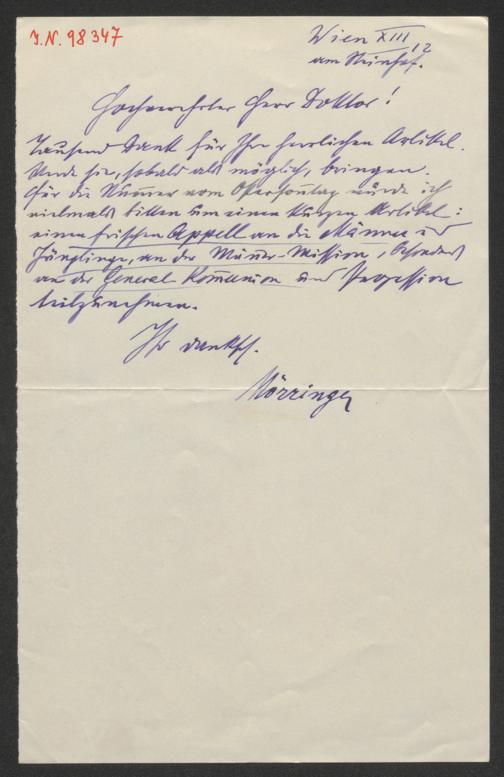 I.N. 98347
Wien XIII/12
am Steinhof.
Hochverehrter Herr Doktor!
Tausend Dank für Ihre herrlichen Artikel.
Werde sie, sobald als möglich, bringen.
Für die Nummer vom Ostersonntag würde ich
vielmals bitten um einen kurzen Artikel:
einen frischen Appell an die Männer u
Jünglinge, an der Männer-Mission, besonders
an der General Kommunion und Prozession
teilzunehmen.
Ihr dankb.